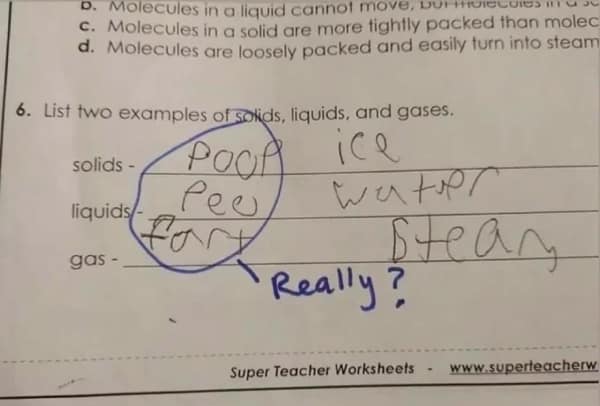 b. Molecules in a liquid cannot move, but molecules in a
c. Molecules in a solid are more tightly packed than molec
d. Molecules are loosely packed and easily turn into steam
6. List two examples of solids, liquids, and gases.
solids - Poop ice
liquids - Pee water
gas - fart Steam
Really?
Super Teacher Worksheets - www.superteacherw